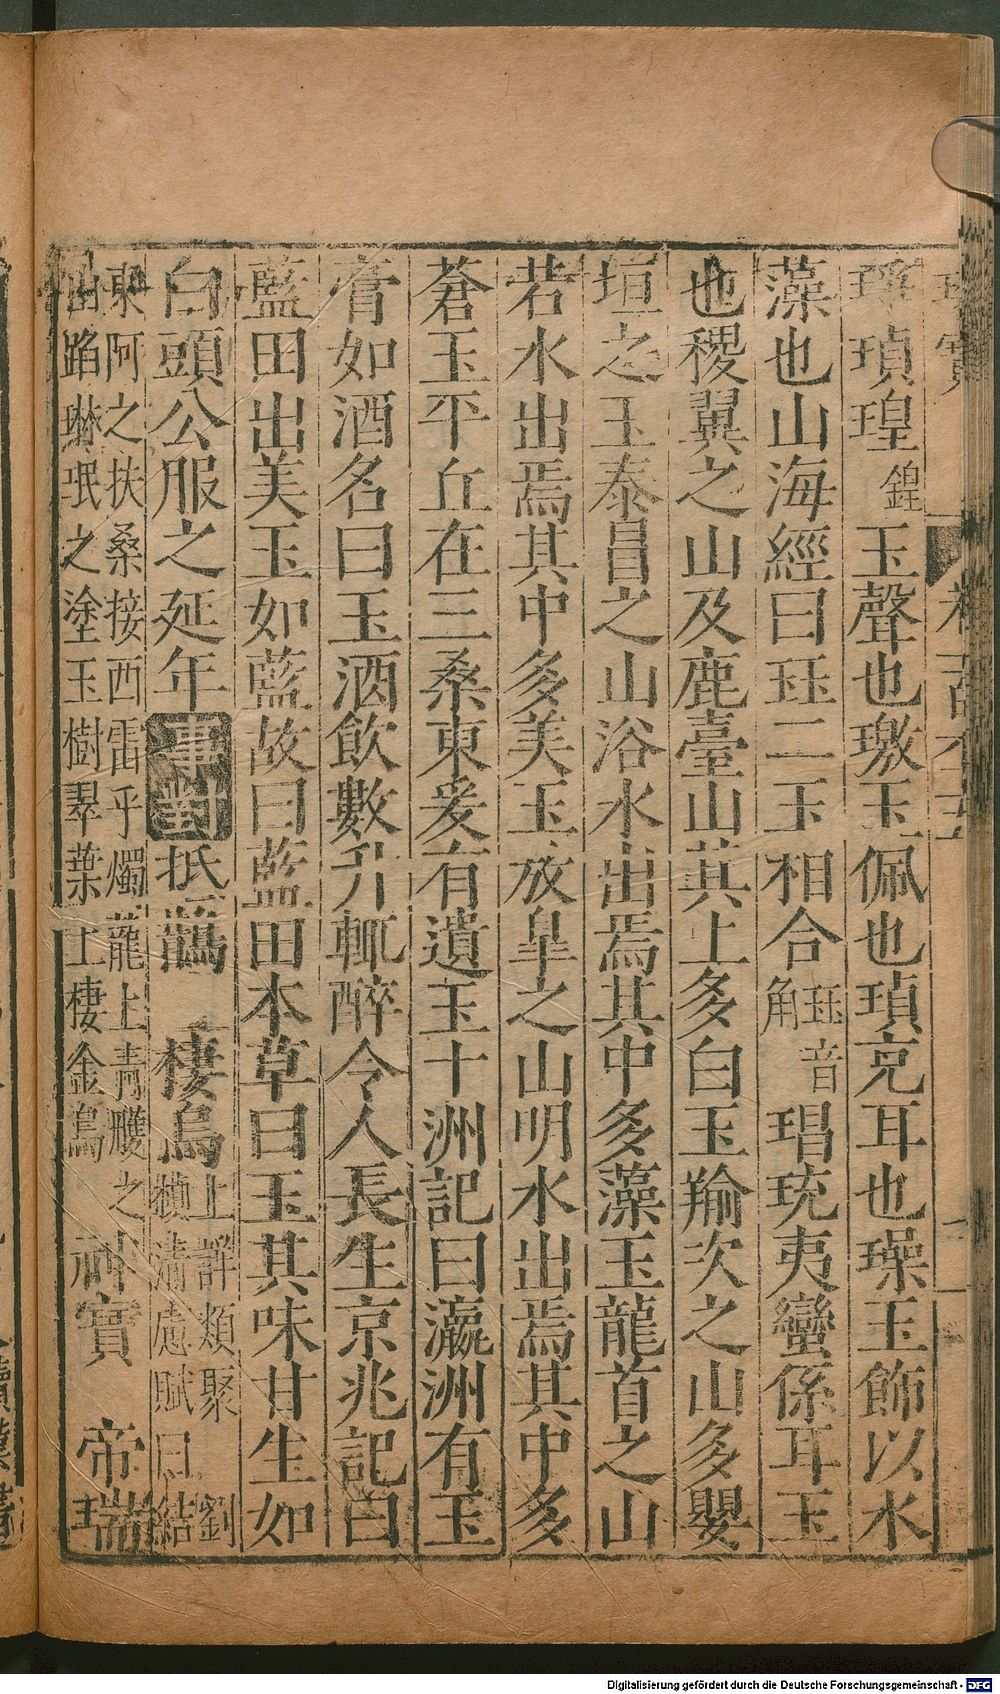 瑝鍠玉聲也璬玉佩也瑱充耳也璪玉飾以水
藻也山海經曰珏二玉相合珏音角琩珫夷蠻係耳玉
也稷翼之山及鹿臺山其上多白玉羭次之山多嬰
垣之玉泰冒之山浴水出焉其中多藻玉龍首之山
若水出焉其中多美玉放皐之山明水出焉其中多
蒼玉平丘在三桑東爰有遺玉十洲記曰瀛洲有玉
膏如酒名曰玉酒飲數升輒醉令人長生京兆記曰
藍田出美玉如藍故曰藍田本草曰玉其味甘生如
白頭公服之延年事對抵鵲 棲烏上詳類聚劉楨清慮賦曰結
東阿之扶桑接西雷乎燭龍上青雘之山蹈琳珉之塗玉樹翠葉上棲金烏 神寶 帝瑞
Digitalisierung gefördert durch die Deutsche Forschungsgemeinschaft - DFG